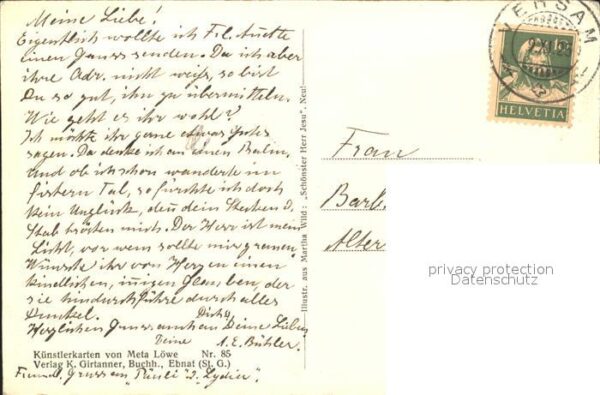 Meine Liebe!
Eigentlich wollte ich Frl. Anette
einen Gruss senden. Da ich aber
ihre Adr. nicht weiß, so bist
Du so gut, ihn zu übermitteln.
Wie geht es ihr wohl?
Ich möchte ihr gerne etwas Gutes
sagen. Da denke ich an einen Psalm,
und ob ich schon wanderte im
finstern Tal, so fürchte ich doch
kein Unglück, denn dein Stecken u.
Stab trösten mich. Der Herr ist mein
Licht, vor wem sollte mir grauen.
Wünsche ihr von Herzen einen
kindlichen, innigen Glauben, der
sie hindurchführe durch alles
Dunkel.
Herzlichen Gruss auch an Deine Lieben
Deine A. E. Bühler.
Künstlerkarten von Meta Löwe Nr. 85
Verlag K. Girtanner, Buchh., Ebnat (St. G.)
Freundl. Gruss an "Päuli" u. Lydia".
Illustr. aus Martha Wild: „Schönster Herr Jesu". Neu!
ERSAM
10
HELVETIA
Frau
Barb
Alter
privacy protection
Datenschutz